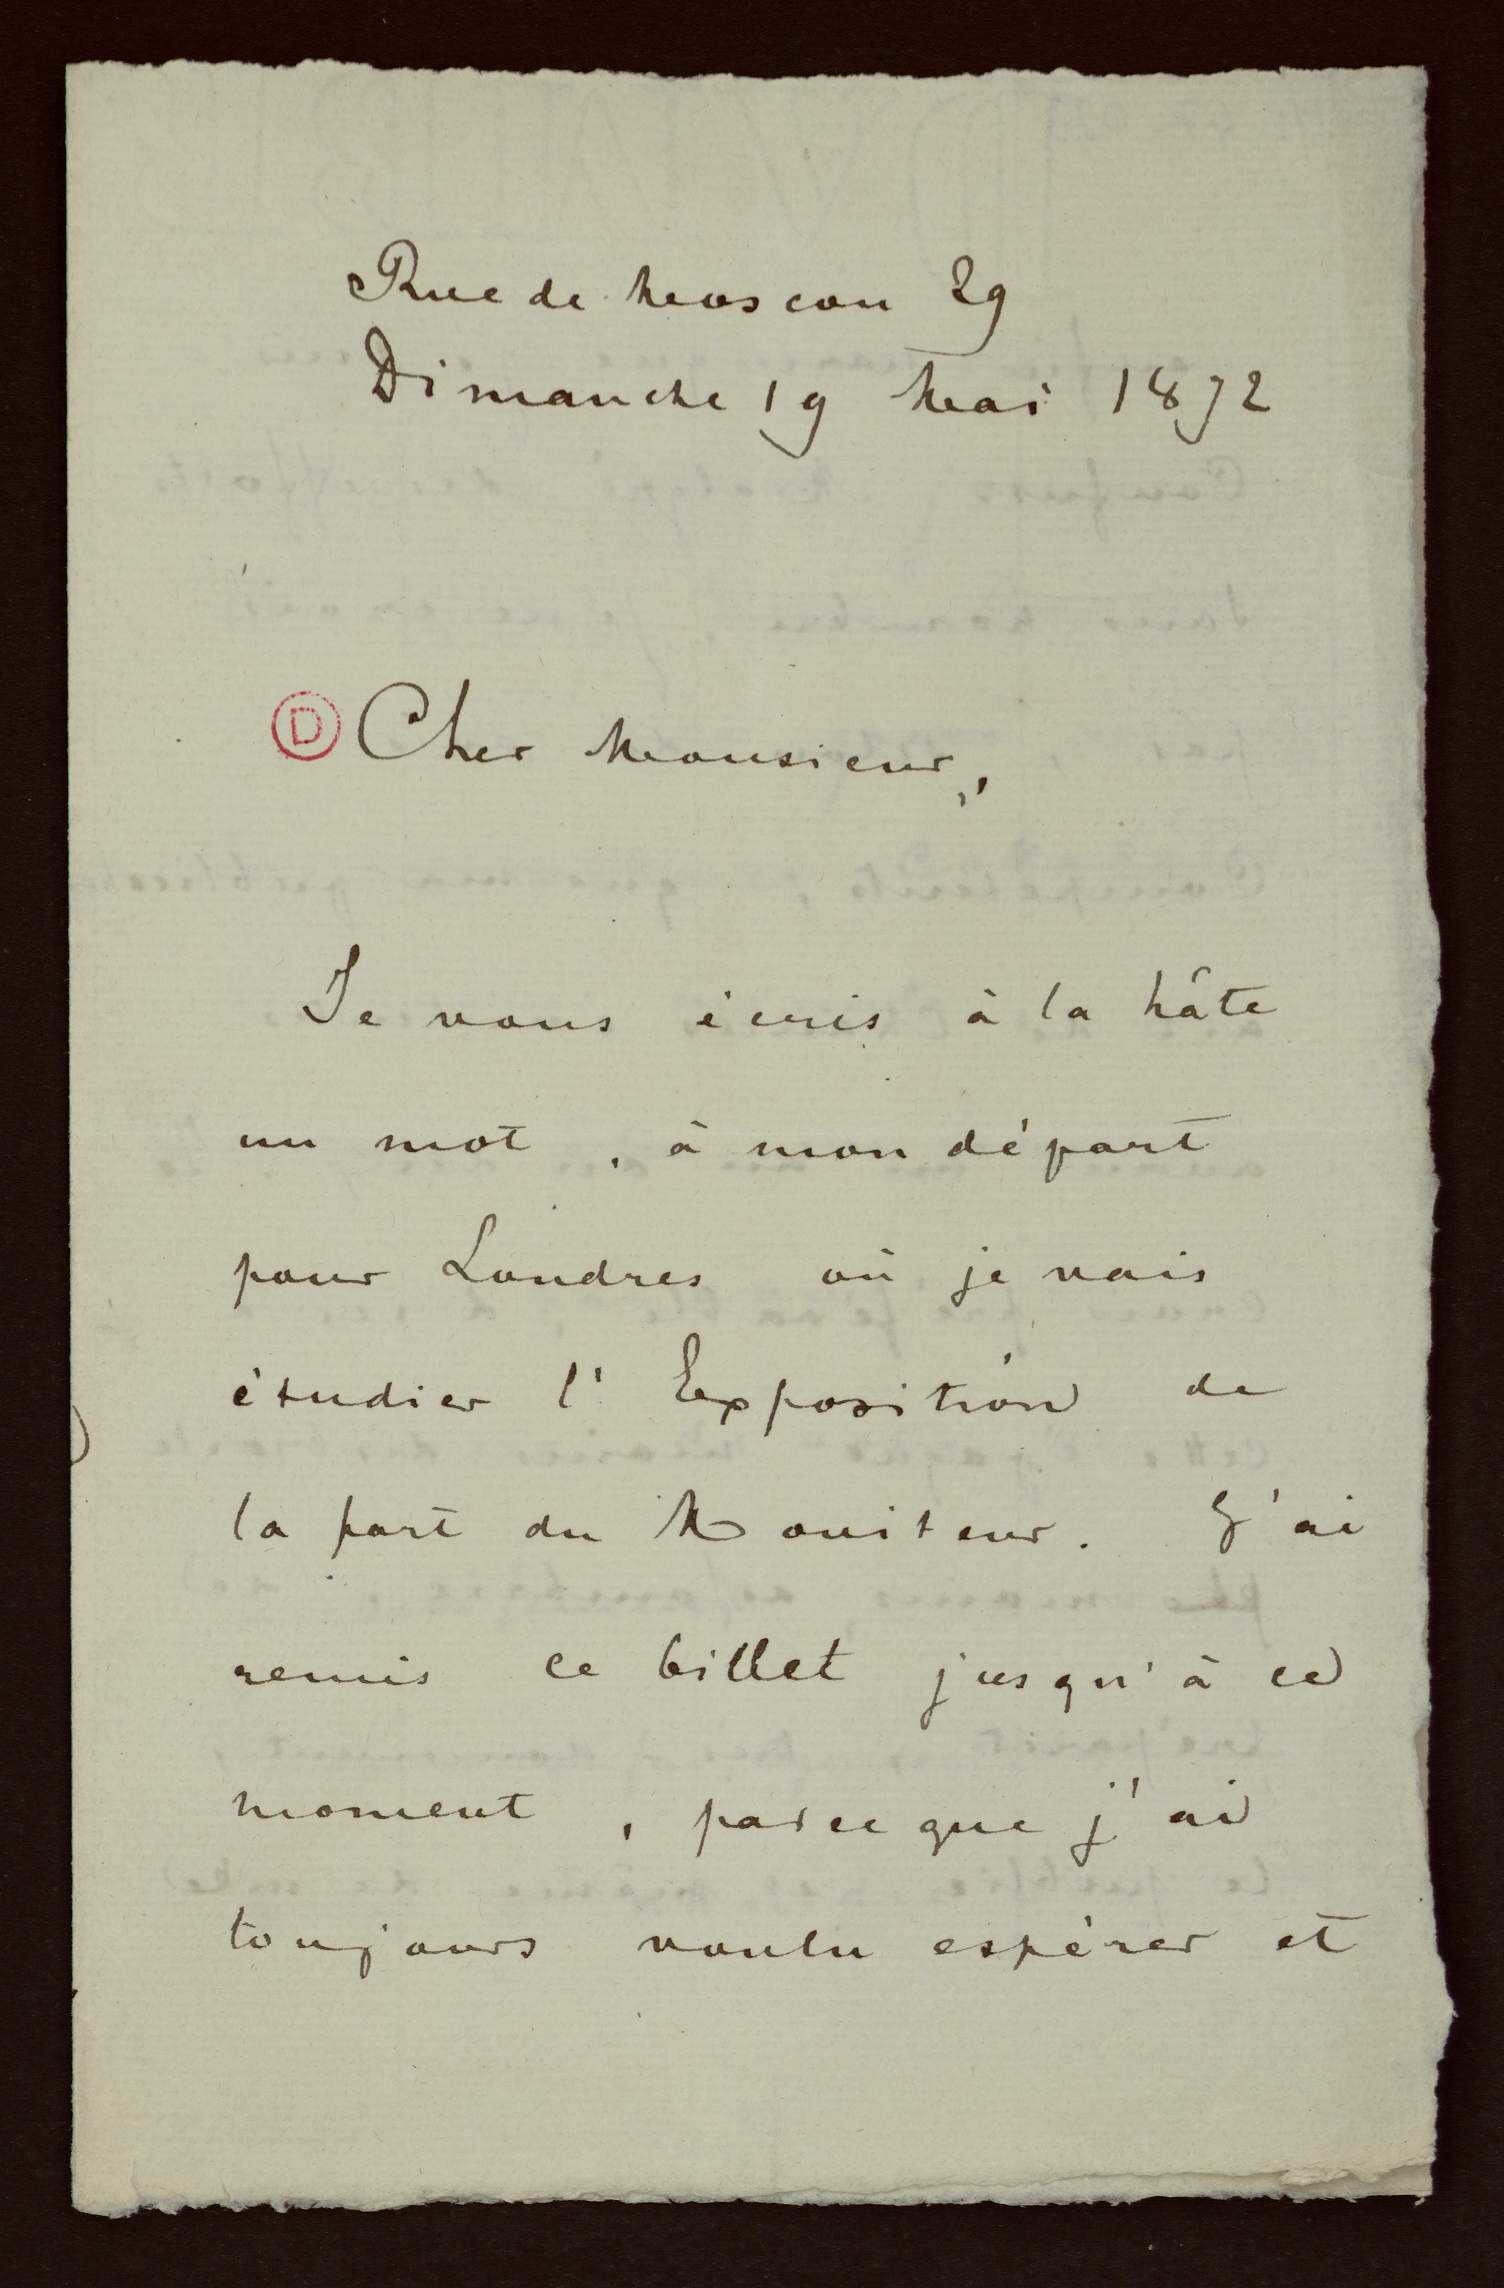 Rue de Moscou 29
Dimanche 19 Mai 1872
D Cher Monsieur,
Je vous écris à la hâte
un mot, à mon départ
pour Londres où je vais
étudier l'Exposition de
la part du Moniteur. J'ai
remis ce billet jusqu'à ce
moment, parce que j'ai
toujours voulu espérer et